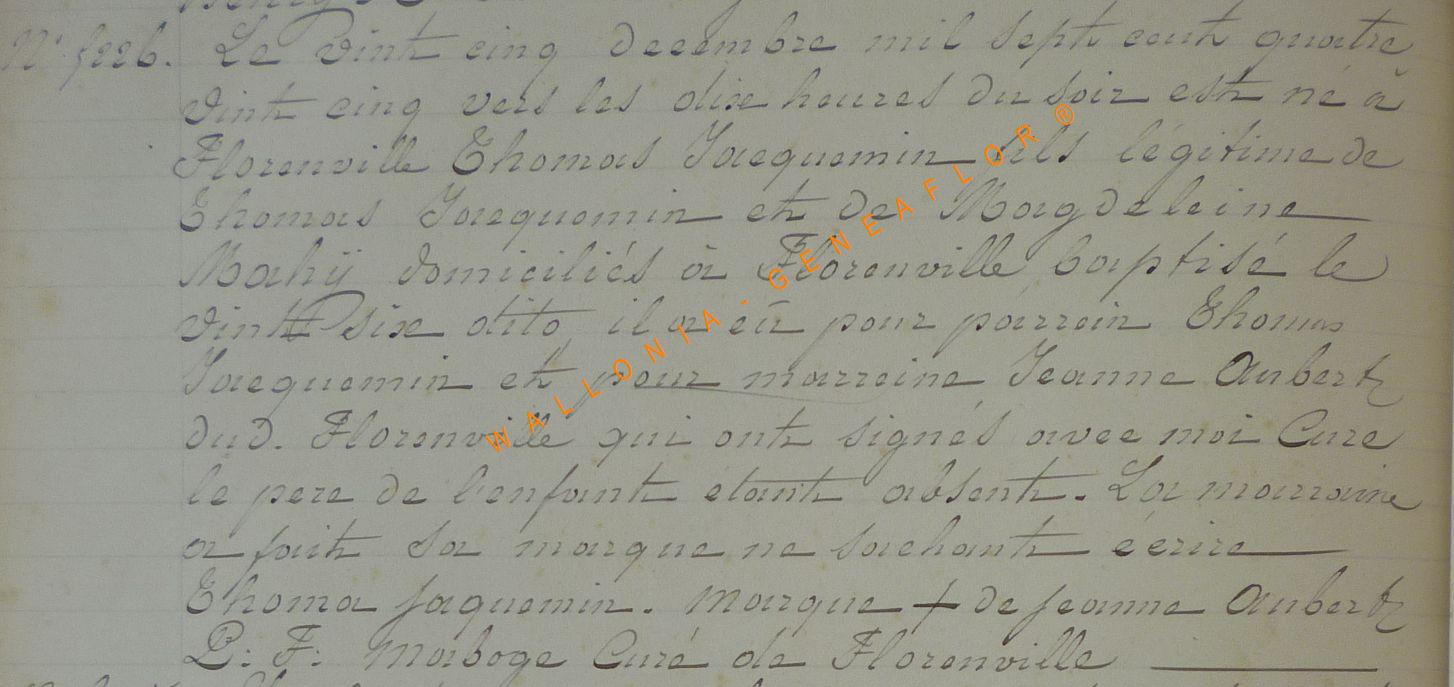 Nº 226. Le vint cinq decembre mil sept cent quatre
vint cinq vers les dixe heures du soir est né à
Florenville Thomas Jacquemin fils légitime de
Thomas Jacquemin et de Magdeleine
Mahÿ domiciliés à Florenville baptisé le
vint sixe dito il a eû pour parrein Thomas
Jacquemin et pour marreine Jeanne Aubert
dud. Florenville qui ont signés avec moi Curé
le pere de l'enfant etant absent. La marraine
a fait sa marque ne sachant écrire
Thoma Jaquemin. Marque + de Jeanne Aubert
P: F: Maboge Curé de Florenville
WALLONIA - GENEAFLOR®